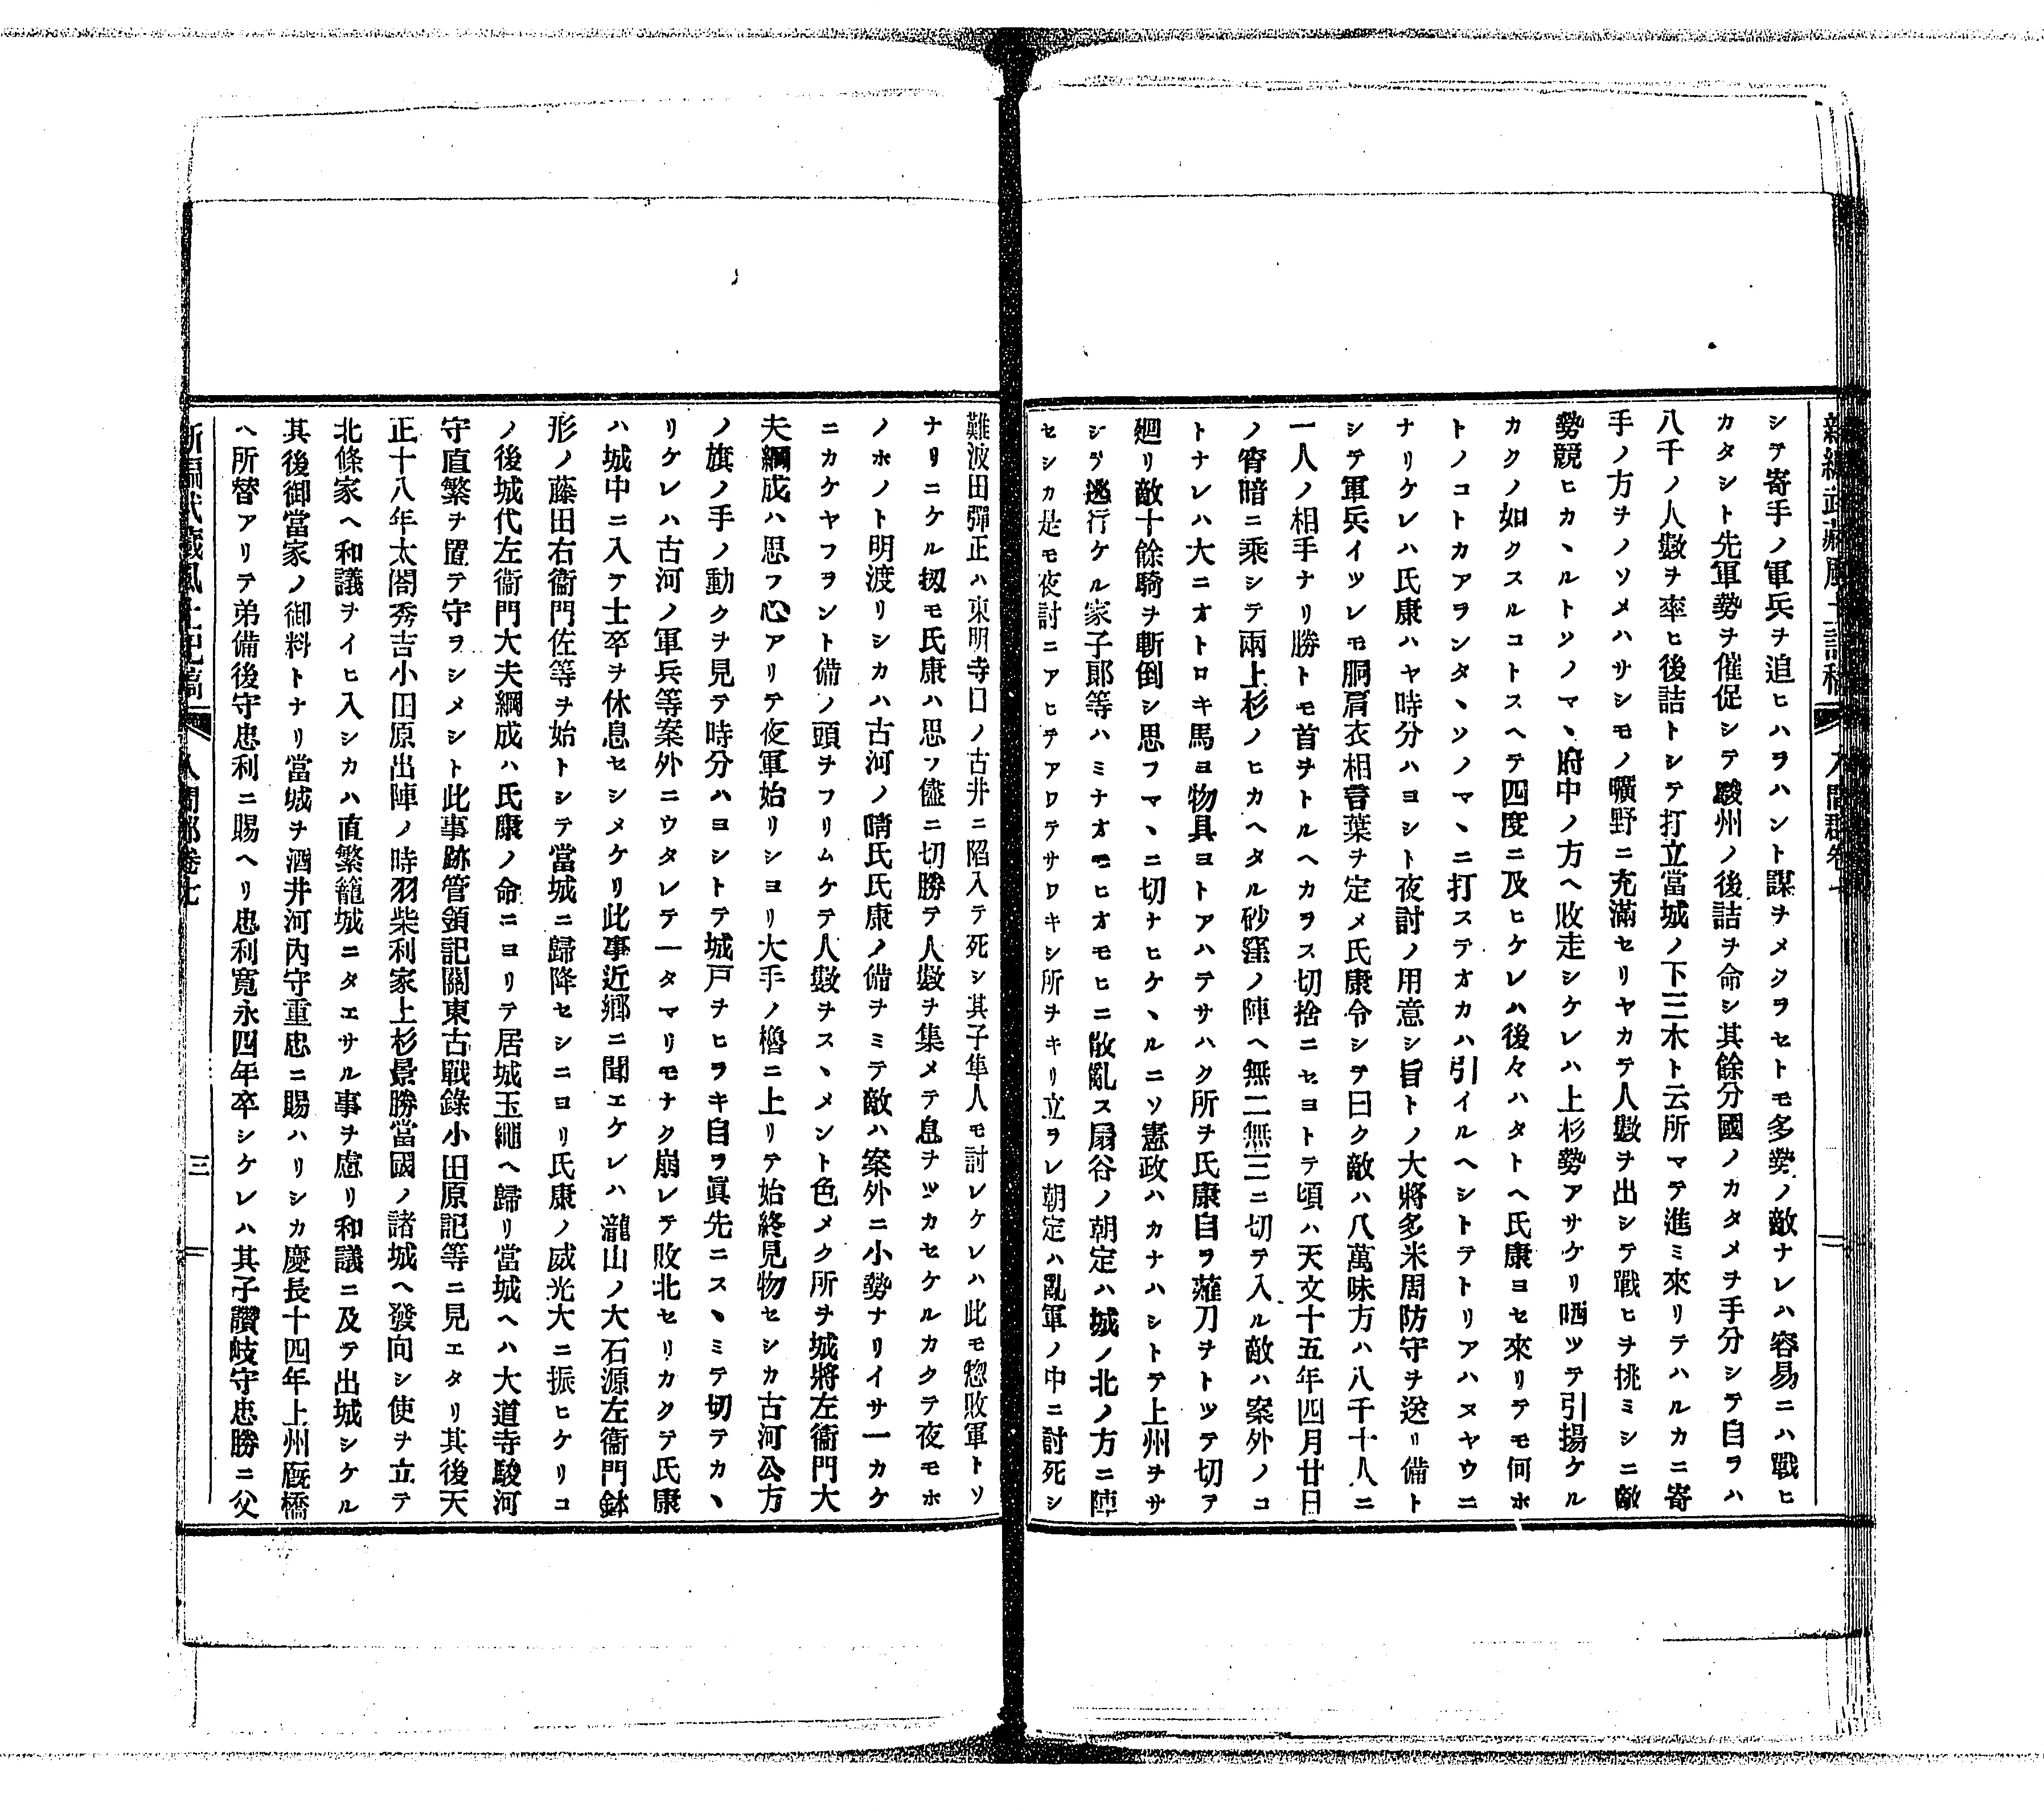 新編武藏風土記稿 入間郡卷七 二
シテ寄手ノ軍兵ヲ追ヒハラハント謀ヲメクラセトモ多勢ノ敵ナレハ容易ニハ戰ヒ
カタシト先軍勢ヲ催促シテ駿州ノ後詰ヲ命シ其餘分國ノカタメヲ手分シテ自ラハ
八千ノ人數ヲ率ヒ後詰トシテ打立當城ノ下三木ト云所マテ進ミ來リテハルカニ寄
手ノ方ヲノソメハサシモノ曠野ニ充滿セリヤカテ人數ヲ出シテ戰ヒヲ挑ミシニ敵
勢競ヒカヽルトソノマヽ府中ノ方ヘ敗走シケレハ上杉勢アサケリ哂ツテ引揚ケル
カクノ如クスルコトスヘテ四度ニ及ヒケレハ後々ハタトヘ氏康ヨセ來リテモ何ホ
トノコトカアランタヽソノマヽニ打ステオカハ引イルヘシトテトリアハヌヤウニ
ナリケレハ氏康ハヤ時分ハヨシト夜討ノ用意シ旨トノ大將多米周防守ヲ送リ備ト
シテ軍兵イツレモ胴肩衣相言葉ヲ定メ氏康令シテ曰ク敵ハ八萬味方ハ八千十人ニ
一人ノ相手ナリ勝トモ首ヲトルヘカラス切捨ニセヨトテ頃ハ天文十五年四月廿日
ノ宵暗ニ乘シテ兩上杉ノヒカヘタル砂窪ノ陣ヘ無二無三ニ切テ入ル敵ハ案外ノコ
トナレハ大ニオトロキ馬ヨ物具ヨトアハテサハク所ヲ氏康自ラ薙刀ヲトツテ切テ
廻リ敵十餘騎ヲ斬倒シ思フマヽニ切ナヒケヽルニソ憲政ハカナハシトテ上州ヲサ
シテ逃行ケル家子郎等ハミナオモヒオモヒニ散亂ス扇谷ノ朝定ハ城ノ北ノ方ニ陣
セシカ是モ夜討ニアヒテアワテサワキシ所ヲキリ立ラレ朝定ハ亂軍ノ中ニ討死シ
難波田彈正ハ東明寺口ノ古井ニ陷入テ死シ其子隼人モ討レケレハ此モ惣敗軍トソ
ナリニケル扨モ氏康ハ思フ儘ニ切勝テ人數ヲ集メテ息ヲツカセケルカクテ夜モホ
ノホノト明渡リシカハ古河ノ晴氏氏康ノ備ヲミテ敵ハ案外ニ小勢ナリイサ一カケ
ニカケヤフラント備ノ頭ヲフリムケテ人數ヲスヽメント色メク所ヲ城將左衞門大
夫綱成ハ思フ心アリテ夜軍始リシヨリ大手ノ櫓ニ上リテ始終見物セシカ古河公方
ノ旗ノ手ノ動クヲ見テ時分ハヨシトテ城戸ヲヒラキ自ラ眞先ニスヽミテ切テカヽ
リケレハ古河ノ軍兵等案外ニウタレテ一タマリモナク崩レテ敗北セリカクテ氏康
ハ城中ニ入テ士卒ヲ休息セシメケリ此事近郷ニ聞エケレハ瀧山ノ大石源左衞門鉢
形ノ藤田右衞門佐等ヲ始トシテ當城ニ歸降セシニヨリ氏康ノ威光大ニ振ヒケリコ
ノ後城代左衞門大夫綱成ハ氏康ノ命ニヨリテ居城玉繩ヘ歸リ當城ヘハ大道寺駿河
守直繁ヲ置テ守ラシメシト此事跡管領記關東古戰錄小田原記等ニ見エタリ其後天
正十八年太閤秀吉小田原出陣ノ時羽柴利家上杉景勝當國ノ諸城ヘ發向シ使ヲ立テ
北條家ヘ和議ヲイヒ入シカハ直繁籠城ニタエサル事ヲ慮リ和議ニ及テ出城シケル
其後御當家ノ御料トナリ當城ヲ酒井河内守重忠ニ賜ハリシカ慶長十四年上州厩橋
ヘ所替アリテ弟備後守忠利ニ賜ヘリ忠利寛永四年卒シケレハ其子讚岐守忠勝ニ父
新編武藏風土記稿 入間郡卷七 三